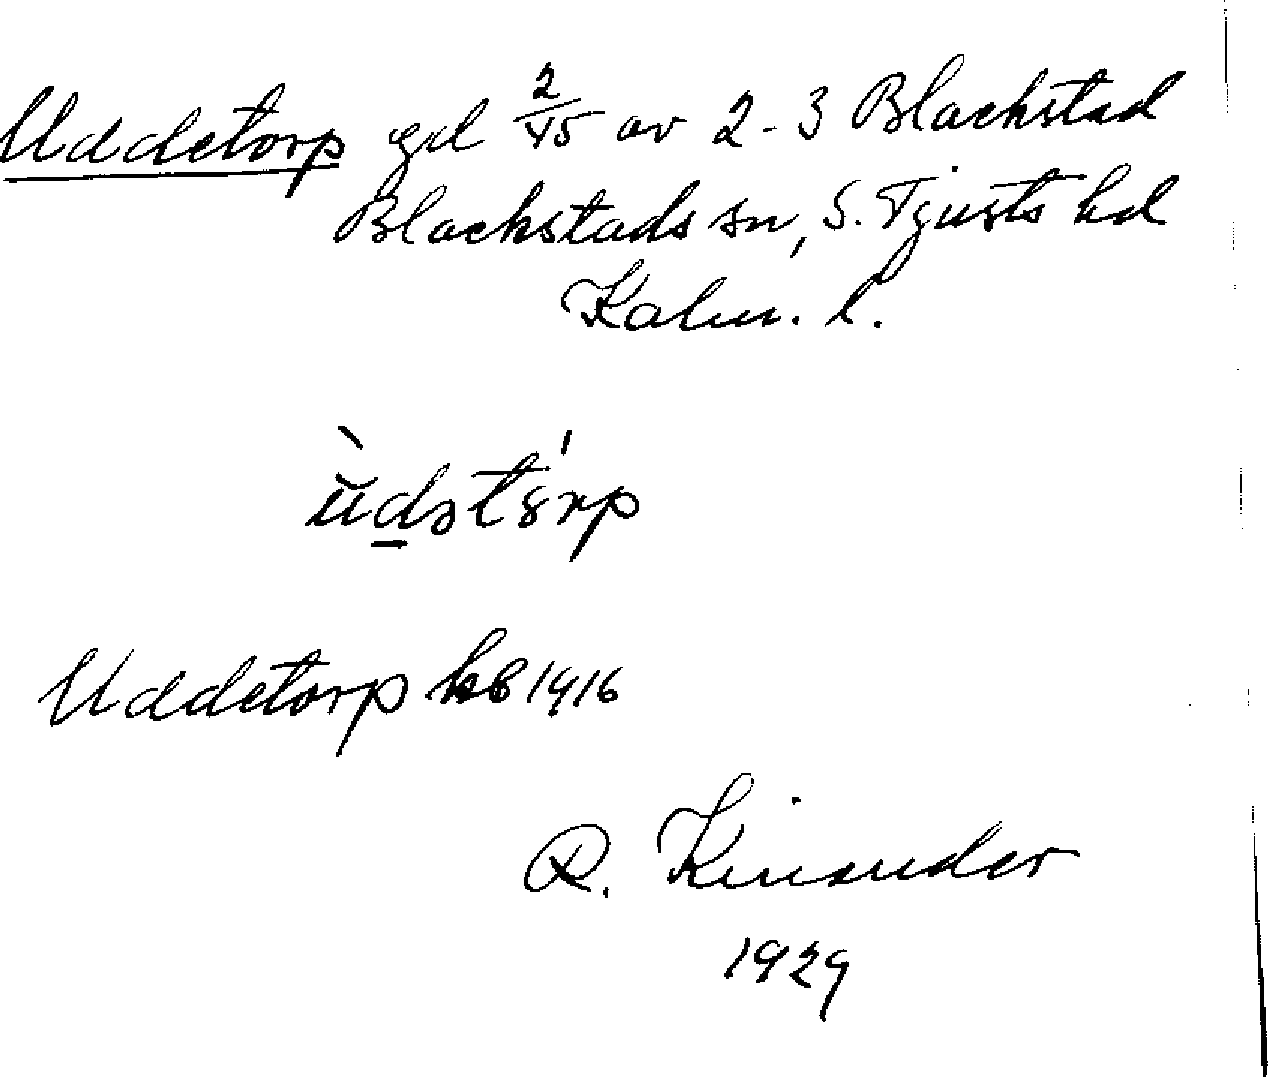 Uddetorp gd 2/15 av 2-3 Blackstad
Blackstads sn, S. Tjusts hd
Kalm. l.
Uddetorp kb 1916
R. Kinander
1929